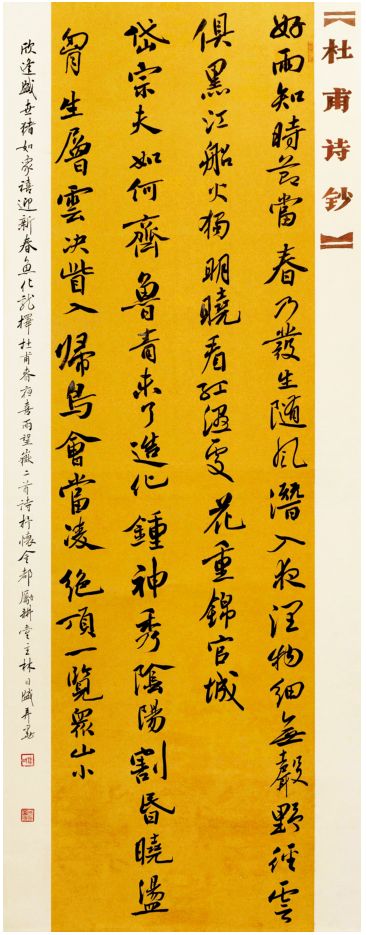 【杜甫诗钞】
好雨知時节當春乃發生随风潛入夜润物细無聲野徑雲
俱黑江船火獨明曉看红濕處花重錦官城
岱宗夫如何齊魯青未了造化鍾神秀陰陽割昏曉盪
胸生層雲决眥入歸鳥會當凌绝頂一覽衆山小
欣逢盛世猪如象禧迎新春魚化龍擇杜甫春夜喜雨望嶽二首诗抒懷金都勵耕堂主林日盛并書